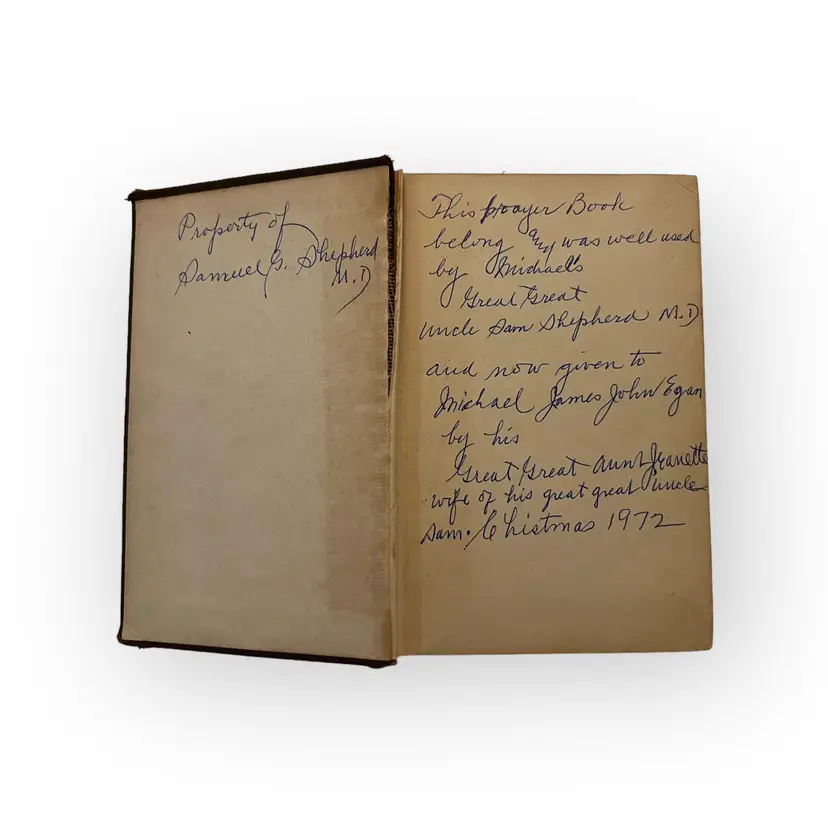 Property of
Samuel G. Shepherd
M.D
This prayer Book
belong any was well used
by Michael's
Great Great
uncle Sam Shepherd M.D
and now given to
Michael James John Egan
by his
Great Great aunt Jeanette
wife of his great great uncle
Sam. Christmas 1972